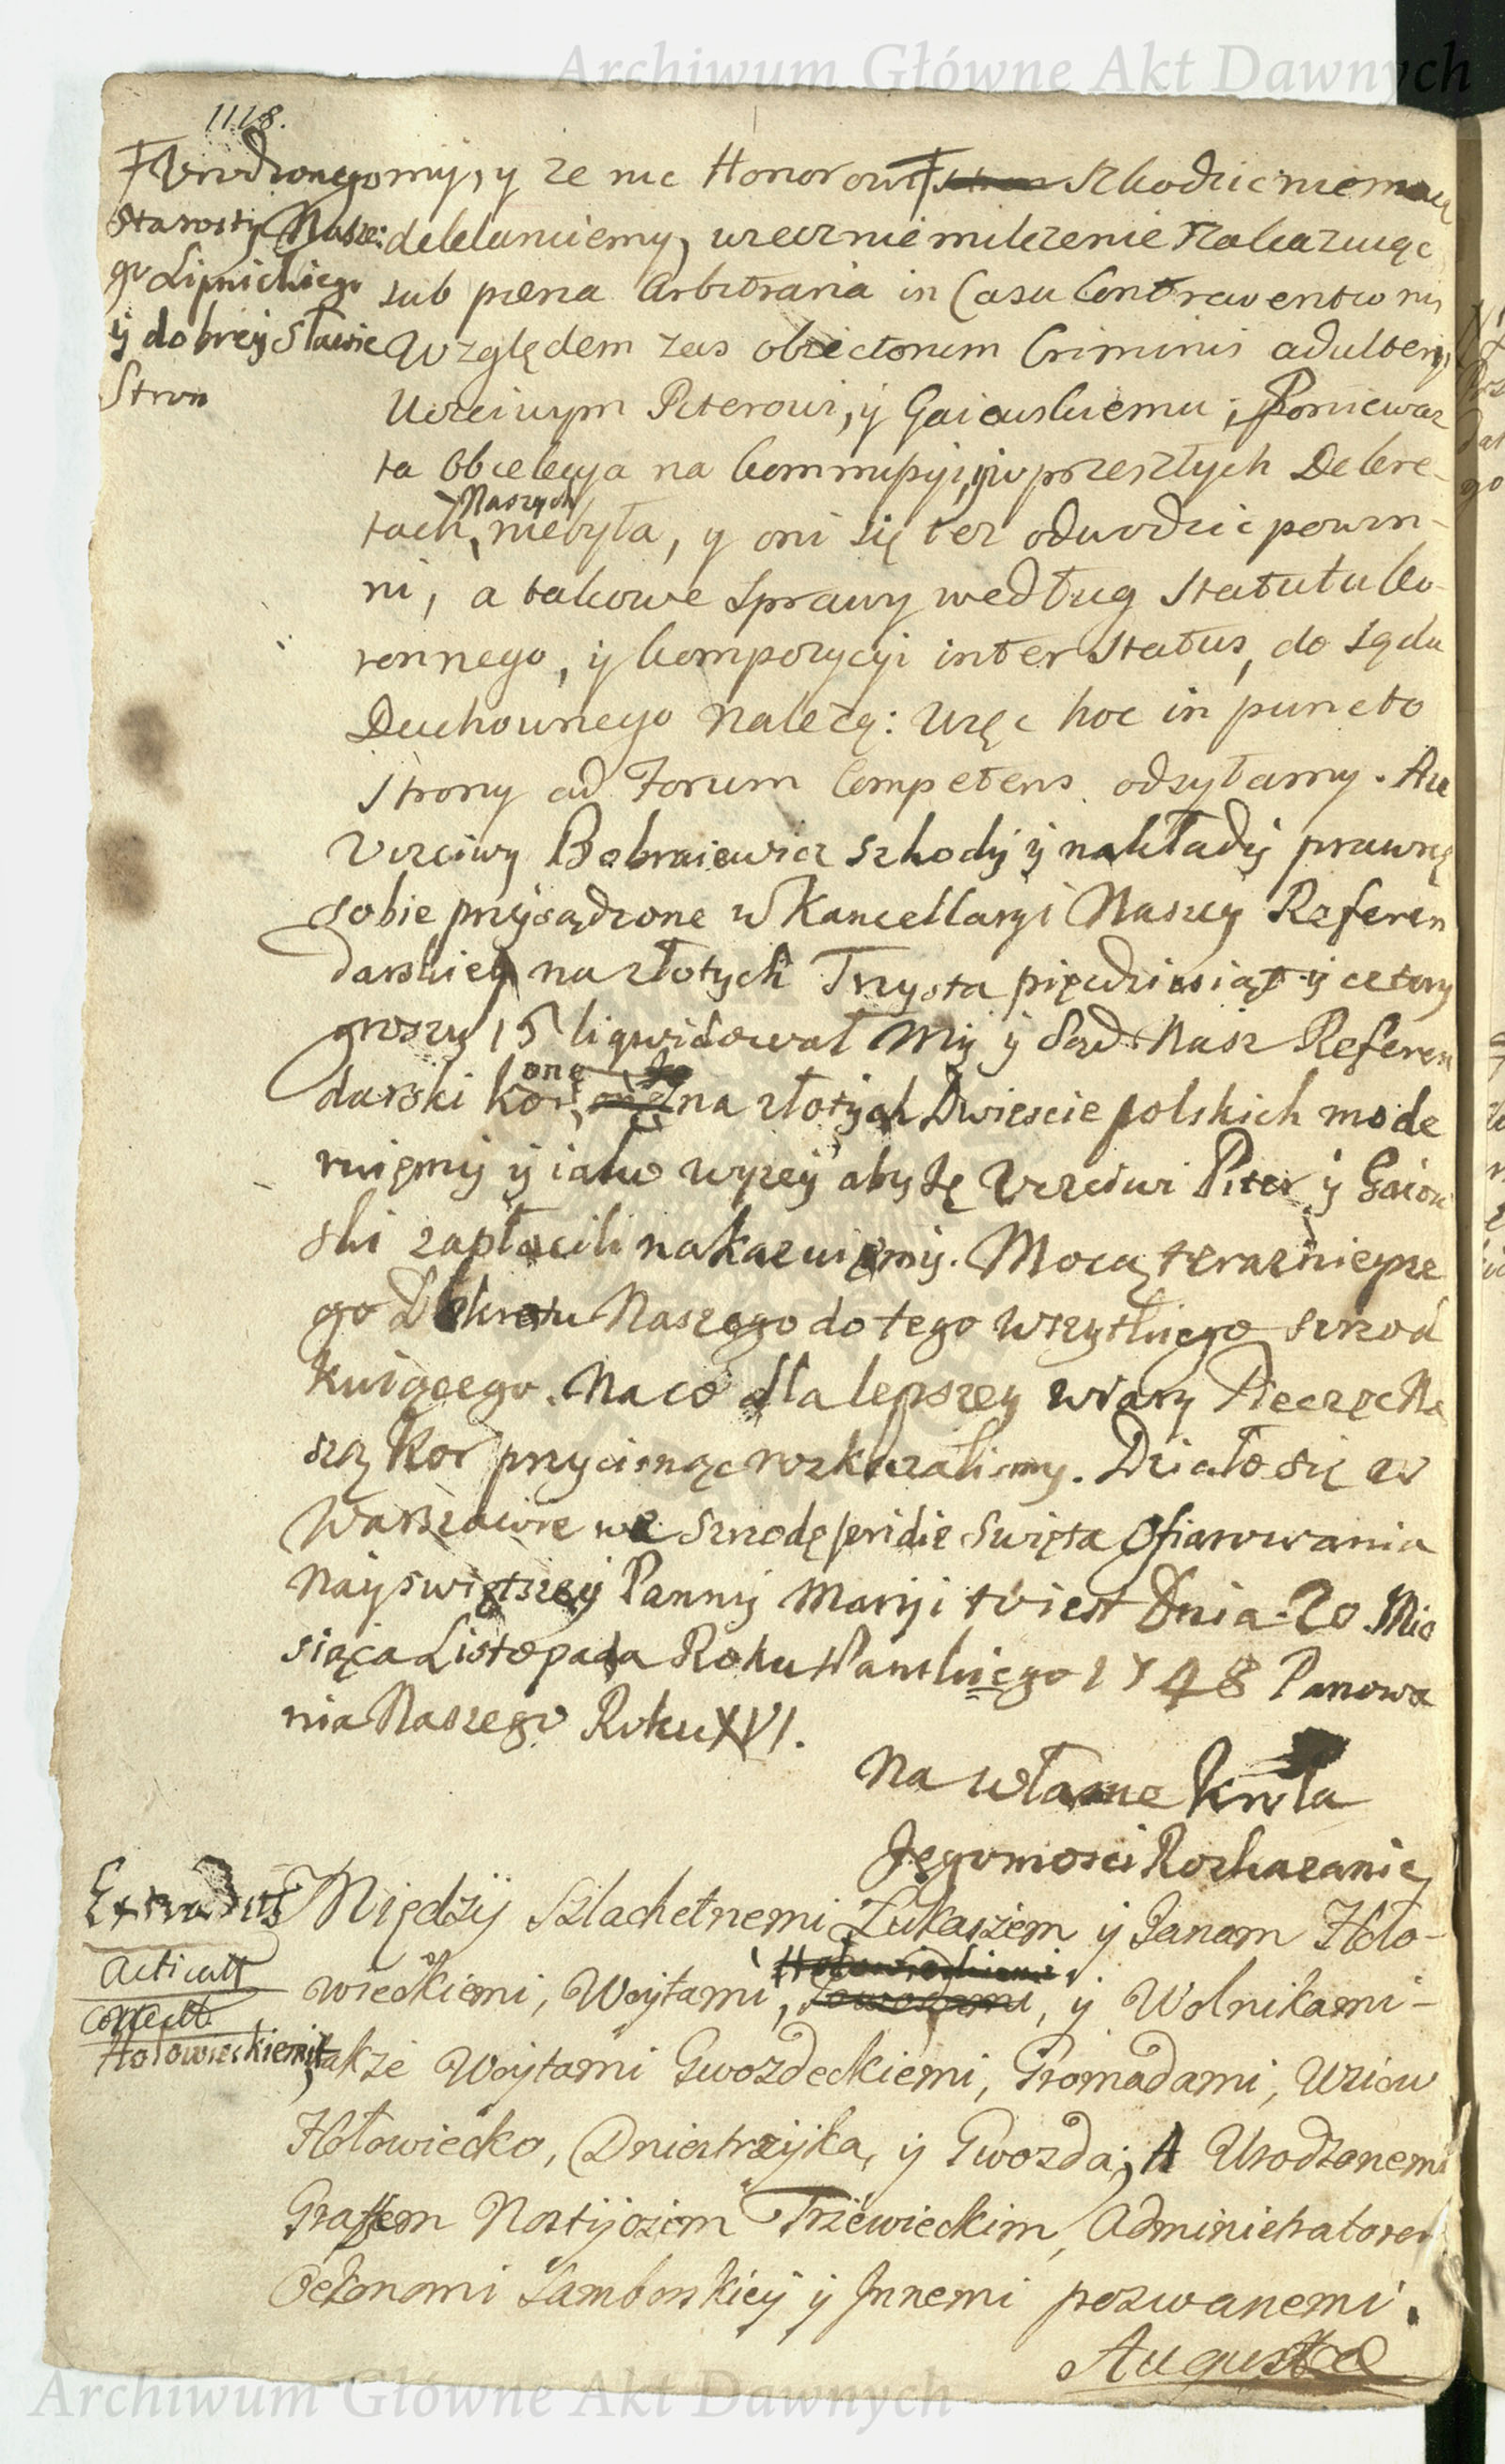 Archiwum Główne Akt Dawnych
1118.
my, y ze nic Honorowi Szkodzic niema
deklaruiemy, wieczne milczenie Nakazuiąc
sub pœna Arbitraria in Casu Contraventionis
Względem zas obiectorum Criminis adulterij
Uczciwym Piterowi, y Gaiewskiemu; Poniewaz
ta Obiekcya na Kommissyi, y w przeszłych Dekre-
tach Naszych niebyła, y oni się tez odwodzic powin-
ni, a takowe Sprawy według Statutu Ko-
ronnego, y kompozycyi inter Status, do Sądu
Duchownego Nalezą: Więc hoc in puncto
Strony ad Forum Competens odsyłamy. Aze
Uczciwy Bobraiewicz szkody y nakłady prawne
sobie przysądzone w Kancellaryi Naszey Referen
darskiey na złotych Trzysta pięcdziesiąt y cztery
groszy 15 liqwidował My y Sąd Nasz Referen
darski Kor: one na złotych Dwiescie polskich mode
ruięmy y iako wyzey aby ię Uczciwi Piter y Gaiow
ski zapłacili nakazuięmy. Mocą teraznieysze
go Dekretu Naszego do tego wszytkiego szrod
kuiącego. Na co dla lepszey wiary Pieczęc Na
szą Kor przycisnąc rozkazalismy. Działo się w
Warszawie we Szrodę pridie Swięta Ofiarowania
Nayswiętszey Panny Maryi to iest Dnia 20 Mie
siąca Listopada Roku Panskiego 1748 Panowa
nia Naszego Roku XVI.
Na własne Krola
Jegomosci Rozkazanie
Między Szlachetnemi Łukaszem y Janem Hoło-
wieckiemi, Woytami, y Wolnikami-
takze Woytami Gwozdeckiemi, Gromadami, Wsiow
Hołowiecko, Dniestrzyka, y Gwozda; A Urodzonemi
Graffem Nostyciem Trzewieckim, Administratorem
Oekonomi Samborskiey y Innemi pozwanemi.
August
Urodzonego
Starosty Nasze:
go Lipnickiego
y dobrey Sławie
Stron
Extraditt
Acticatt
Correctt
Hołowieckiemi
Archiwum Główne Akt Dawnych